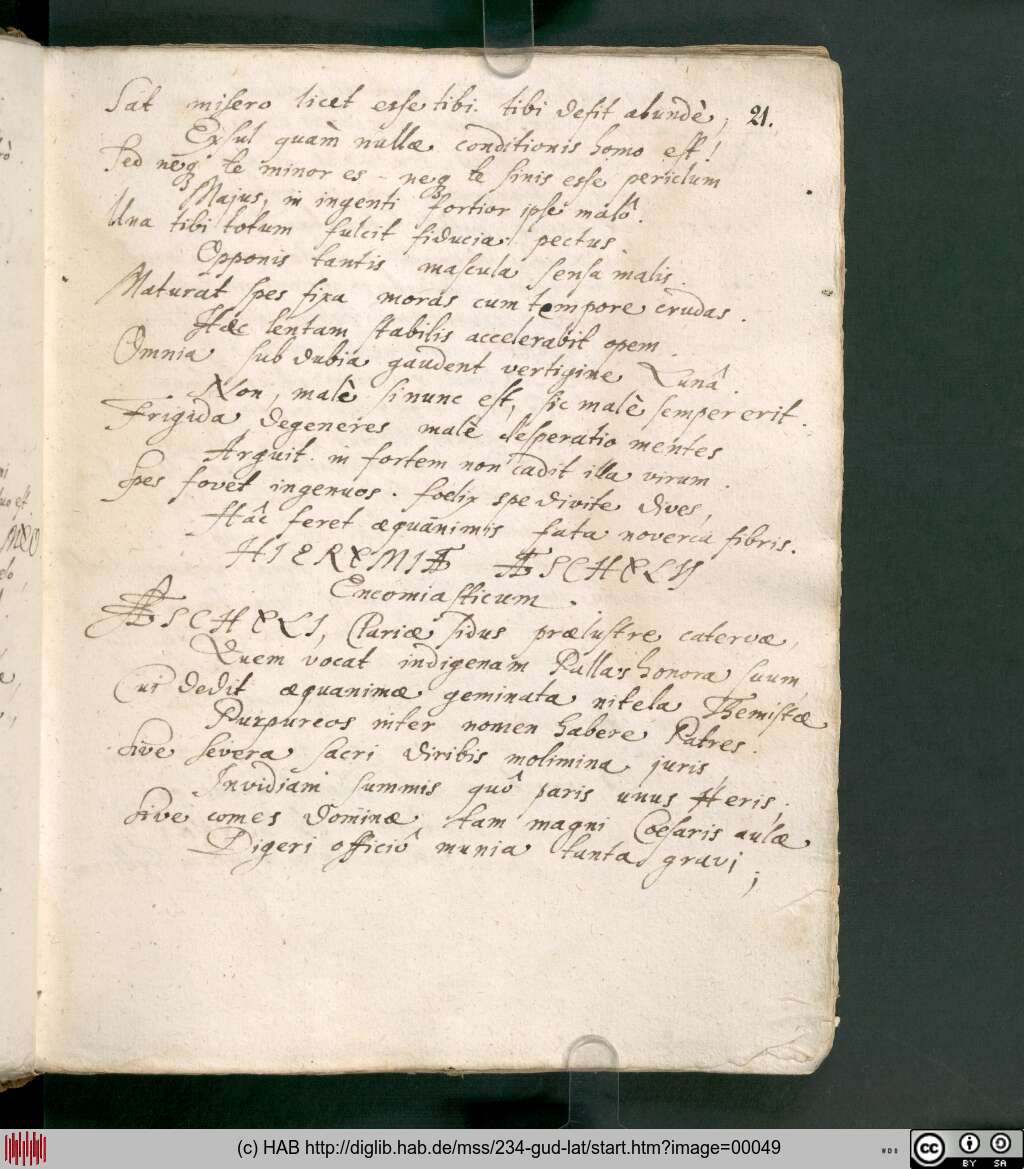 Sat misero licet esse tibi. tibi desit abundè, 21.
Exsul quàm nullæ conditionis homo est!
Sed neq te minor es - neq te sinis esse periclum
Majus, in ingenti fortior ipse malô.
Una tibi totum fulcit fiducia pectus.
Opponis tantis mascula sensa malis.
Maturat spes fixa moras cum tempore crudas.
Hæc lentam stabilis accelerabit opem.
Omnia sub dubia gaudent vertigine Lunâ.
Non, malè si nunc est, sic malè semper erit.
Frigida degeneres malè desperatio mentes
Arguit. in fortem non cadit illa virum.
Spes fovet ingenuos. foelix spe divite dives,
Hâc feret æquanimis fata noverca fibris.
HIEREMIÆ ÆSCHELII
Encomiasticum.
ÆSCHELI, Clariæ sidus prælustre catervæ,
Quem vocat indigenam Pallas honora suum,
Cui dedit æquanimæ geminata nitela Themistæ
Purpureos inter nomen habere Patres.
Sive severa sacri diribis molimina juris,
Invidiam summis quô paris unus Heris;
Sive comes Dominæ tam magni Cœsaris aulæ
Digeri officiô munia tanta gravi;
(c) HAB http://diglib.hab.de/mss/234-gud-lat/start.htm?image=00049
cc BY SA